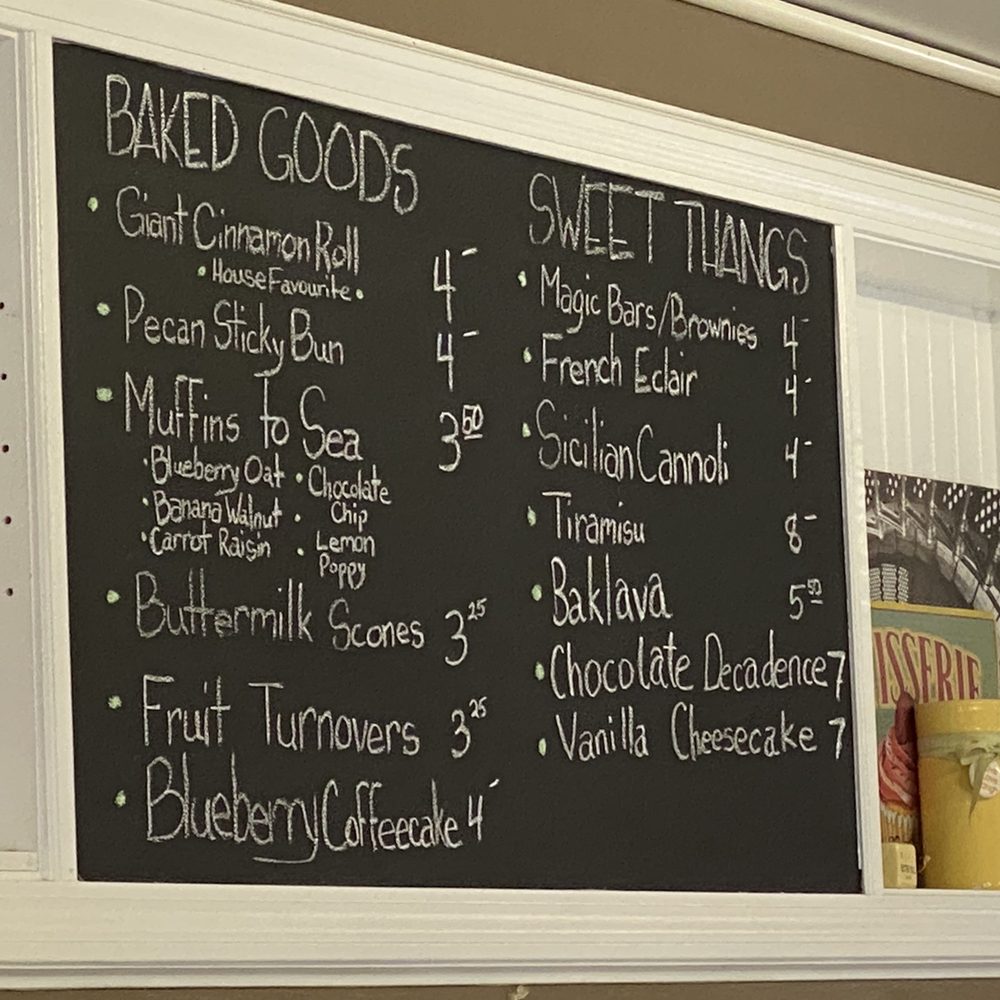 BAKED GOODS
• Giant Cinnamon Roll 4-
• House Favourite •
• Pecan Sticky Bun 4-
• Muffins to Sea 3 50
• Blueberry Oat • Chocolate
• Banana Walnut • Chip
• Carrot Raisin • Lemon
Poppy
• Buttermilk Scones 3 25
• Fruit Turnovers 3 25
• Blueberry Coffeecake 4-
SWEET THANGS
• Magic Bars/Brownies 4-
• French Eclair 4-
• Sicilian Cannoli 4-
• Tiramisu 8-
• Baklava 5 50
• Chocolate Decadence 7
• Vanilla Cheesecake 7
ISSERIE